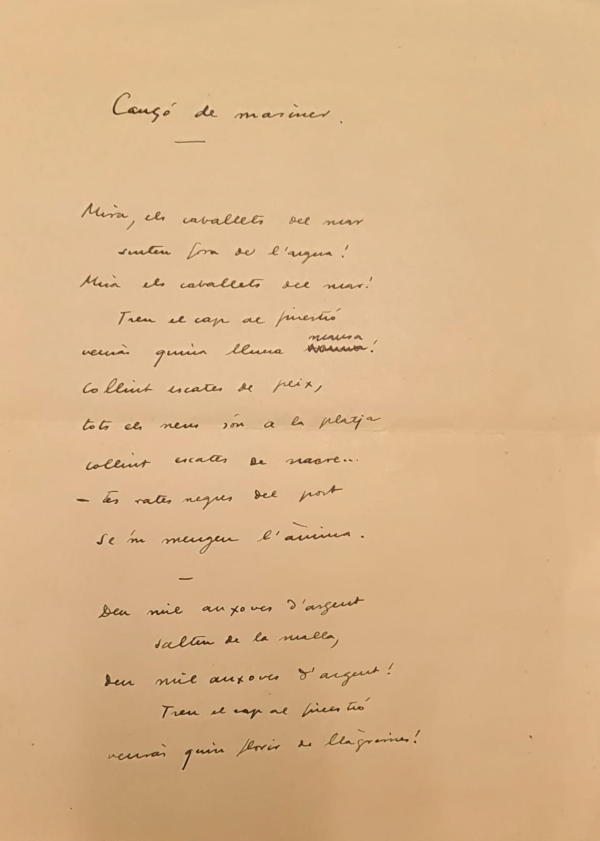 Cançó de mariner.
Mira, els cavallets del mar
surten fora de l'aigua!
Mira els cavallets del mar!
Treu el cap al finestró
veuràs quina lluna mansa!
Collint escates de peix,
tots els nens són a la platja
collint escates de nacre...
— Les rates negres del port
se'm mengen l'ànima.
—
Deu mil anxoves d'argent
salten de la malla,
deu mil anxoves d'argent!
Treu el cap al finestró
veuràs quin florir de llàgrimes!